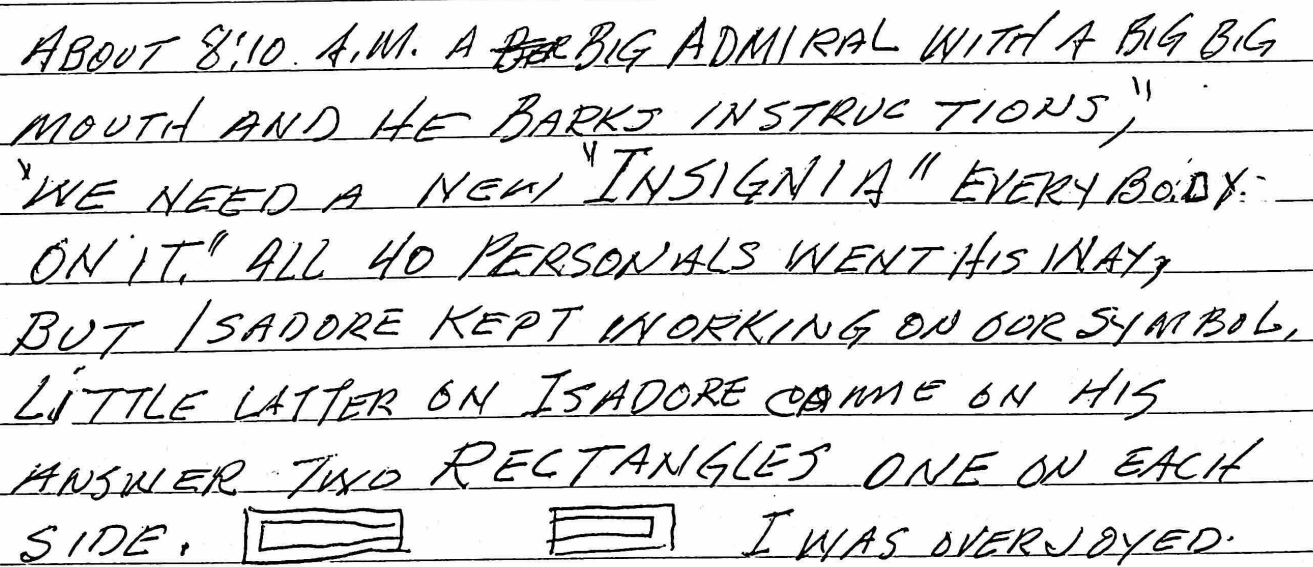 ABOUT 8:10 A.M. A BIG ADMIRAL WITH A BIG BIG
MOUTH AND HE BARKS INSTRUCTIONS,"
"WE NEED A NEW "INSIGNIA" EVERYBODY
ON IT." ALL 40 PERSONALS WENT HIS WAY,
BUT ISADORE KEPT WORKING ON OUR SYMBOL,
LITTLE LATTER ON ISADORE CAMME ON HIS
ANSWER TWO RECTANGLES ONE ON EACH
SIDE. I WAS OVERJOYED.